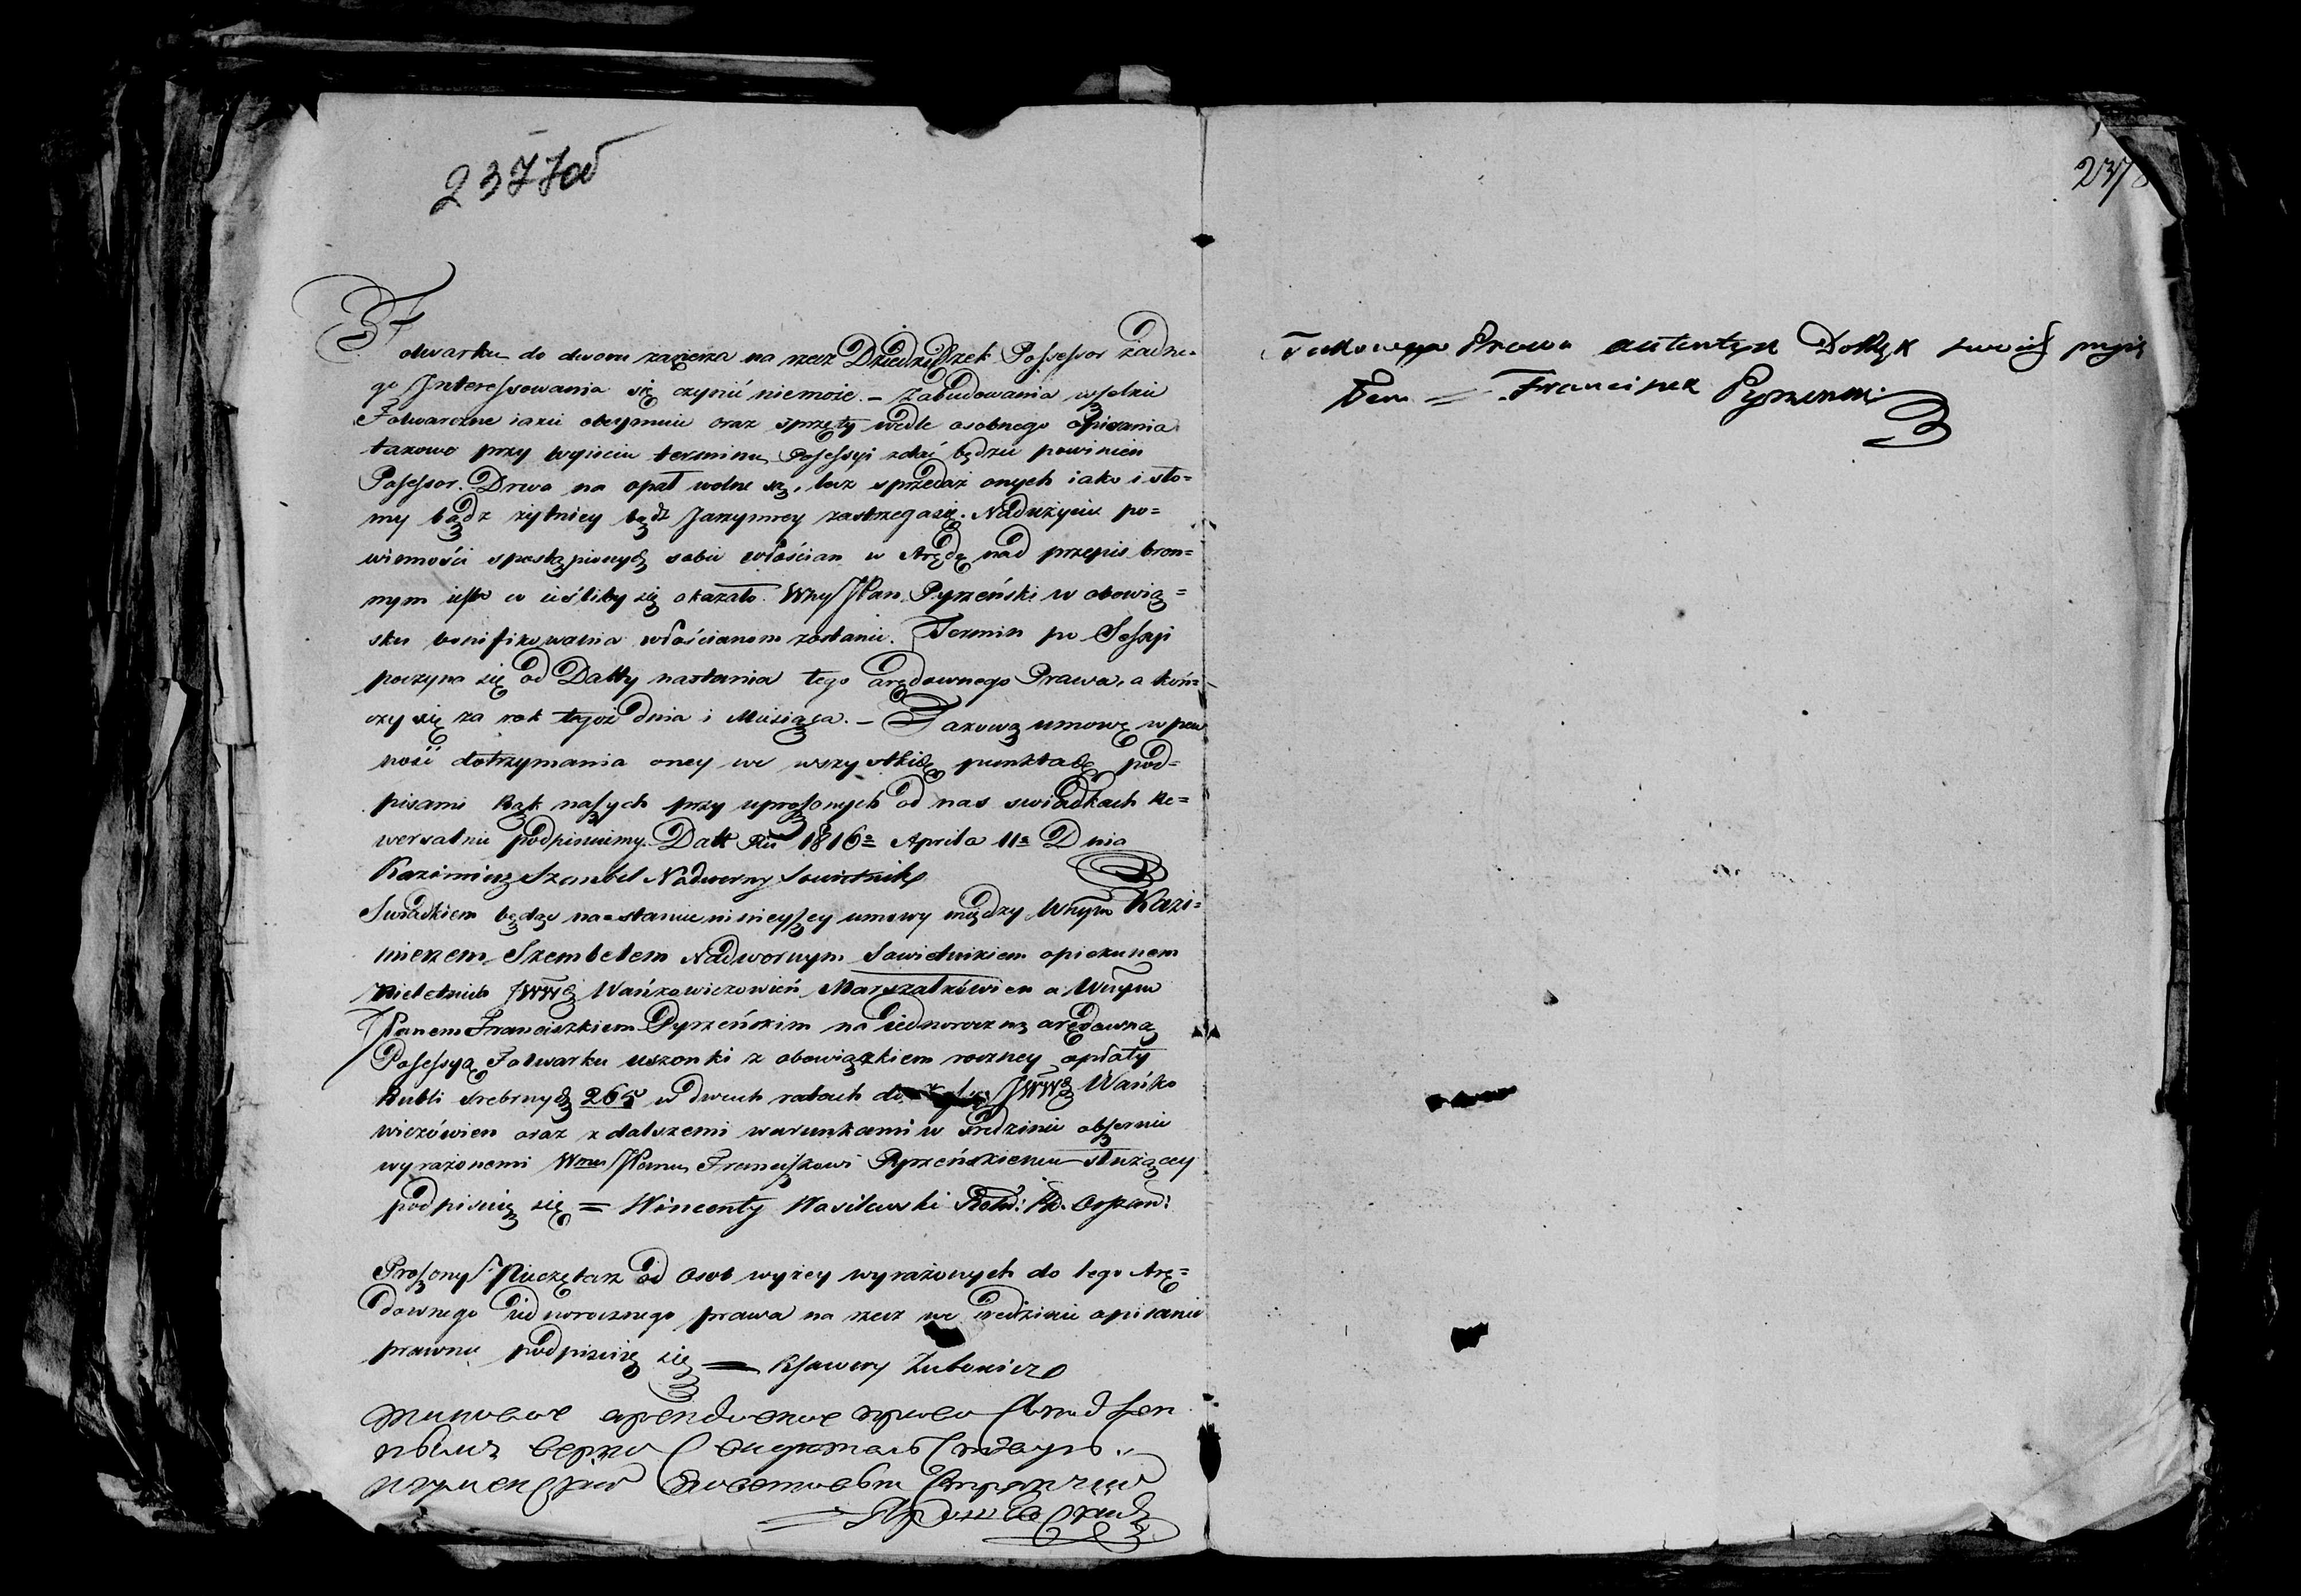 2377 об
2378
Folwarku do dworu zabiera na rzecz Dziedziczek Possessor żadne-
go Interessowania się czynić niemoże. – Zabudowania wselkie
Folwarczne iakie obeymuie oraz sprzęty wedle osobnego opisania
takowo przy wyiściu terminu Posessyi zdać będzie powinien
Posessor. Drwa na opał wolne są, lecz sprzedaż onych iako i sło=
my bądź żytniey bądź Jarzynney zastrzega się. Nadużycie po=
winności spostąpionych sobie włościan w Arędę nad przepis bron=
nym iest a ieśliby się okazało. Wny JPan Pyrzeński w obowią=
sku bonifikowania włościanom zostanie. Termin po Sessyi
poczyna się od Datty nastania tego arędownego Prawa, a koń=
czy się za rok tegoż dnia i Miesiąca. – Takową umowę w pew
ność dotrzymania oney we wszystkich punktach pod=
pisami Rąk naszych przy uproszonych od nas swiadkach Re=
wersalnie podpisuiemy. Datt Ru 1816 Aprila 11 Dnia
Kazimierz Szembel Nadworny Sowietnik
Swiadkiem będąc na stanie ninieyszey umowy między Wnym Kazi=
mierzem Szembelem Nadwornym Sowietnikiem opiekunem
Nieletnich JWW Wańkowiczowień Marszałkówien a Wnym
Panem Franciszkiem Pyrzeńskim na iednoroczną arędowną
Posessyą Folwarku uszonki z obowiązkiem roczney opłaty
Rubli srebrnych 265 w dwuch ratach do JWW Wańko
wiczówien oraz z dalszemi warunkami w sredzinie obszernie
wyrażonemi Wmu JPanu Franciszkowi Pyrzeńskiemu służącey
podpisuię się = Wincenty Wasilewski
Proszony Pieczętarz od Osob wyżey wyrażonych do tego Arę=
downego iednorocznego prawa na rzecz we sredzinie opisanie
prawne podpisuię się = Xawery Zubowicz
таковое арендовное право
верно
Takowego Prawa autentyk Dottyk swoich pism
Franciszek Pyrzenski